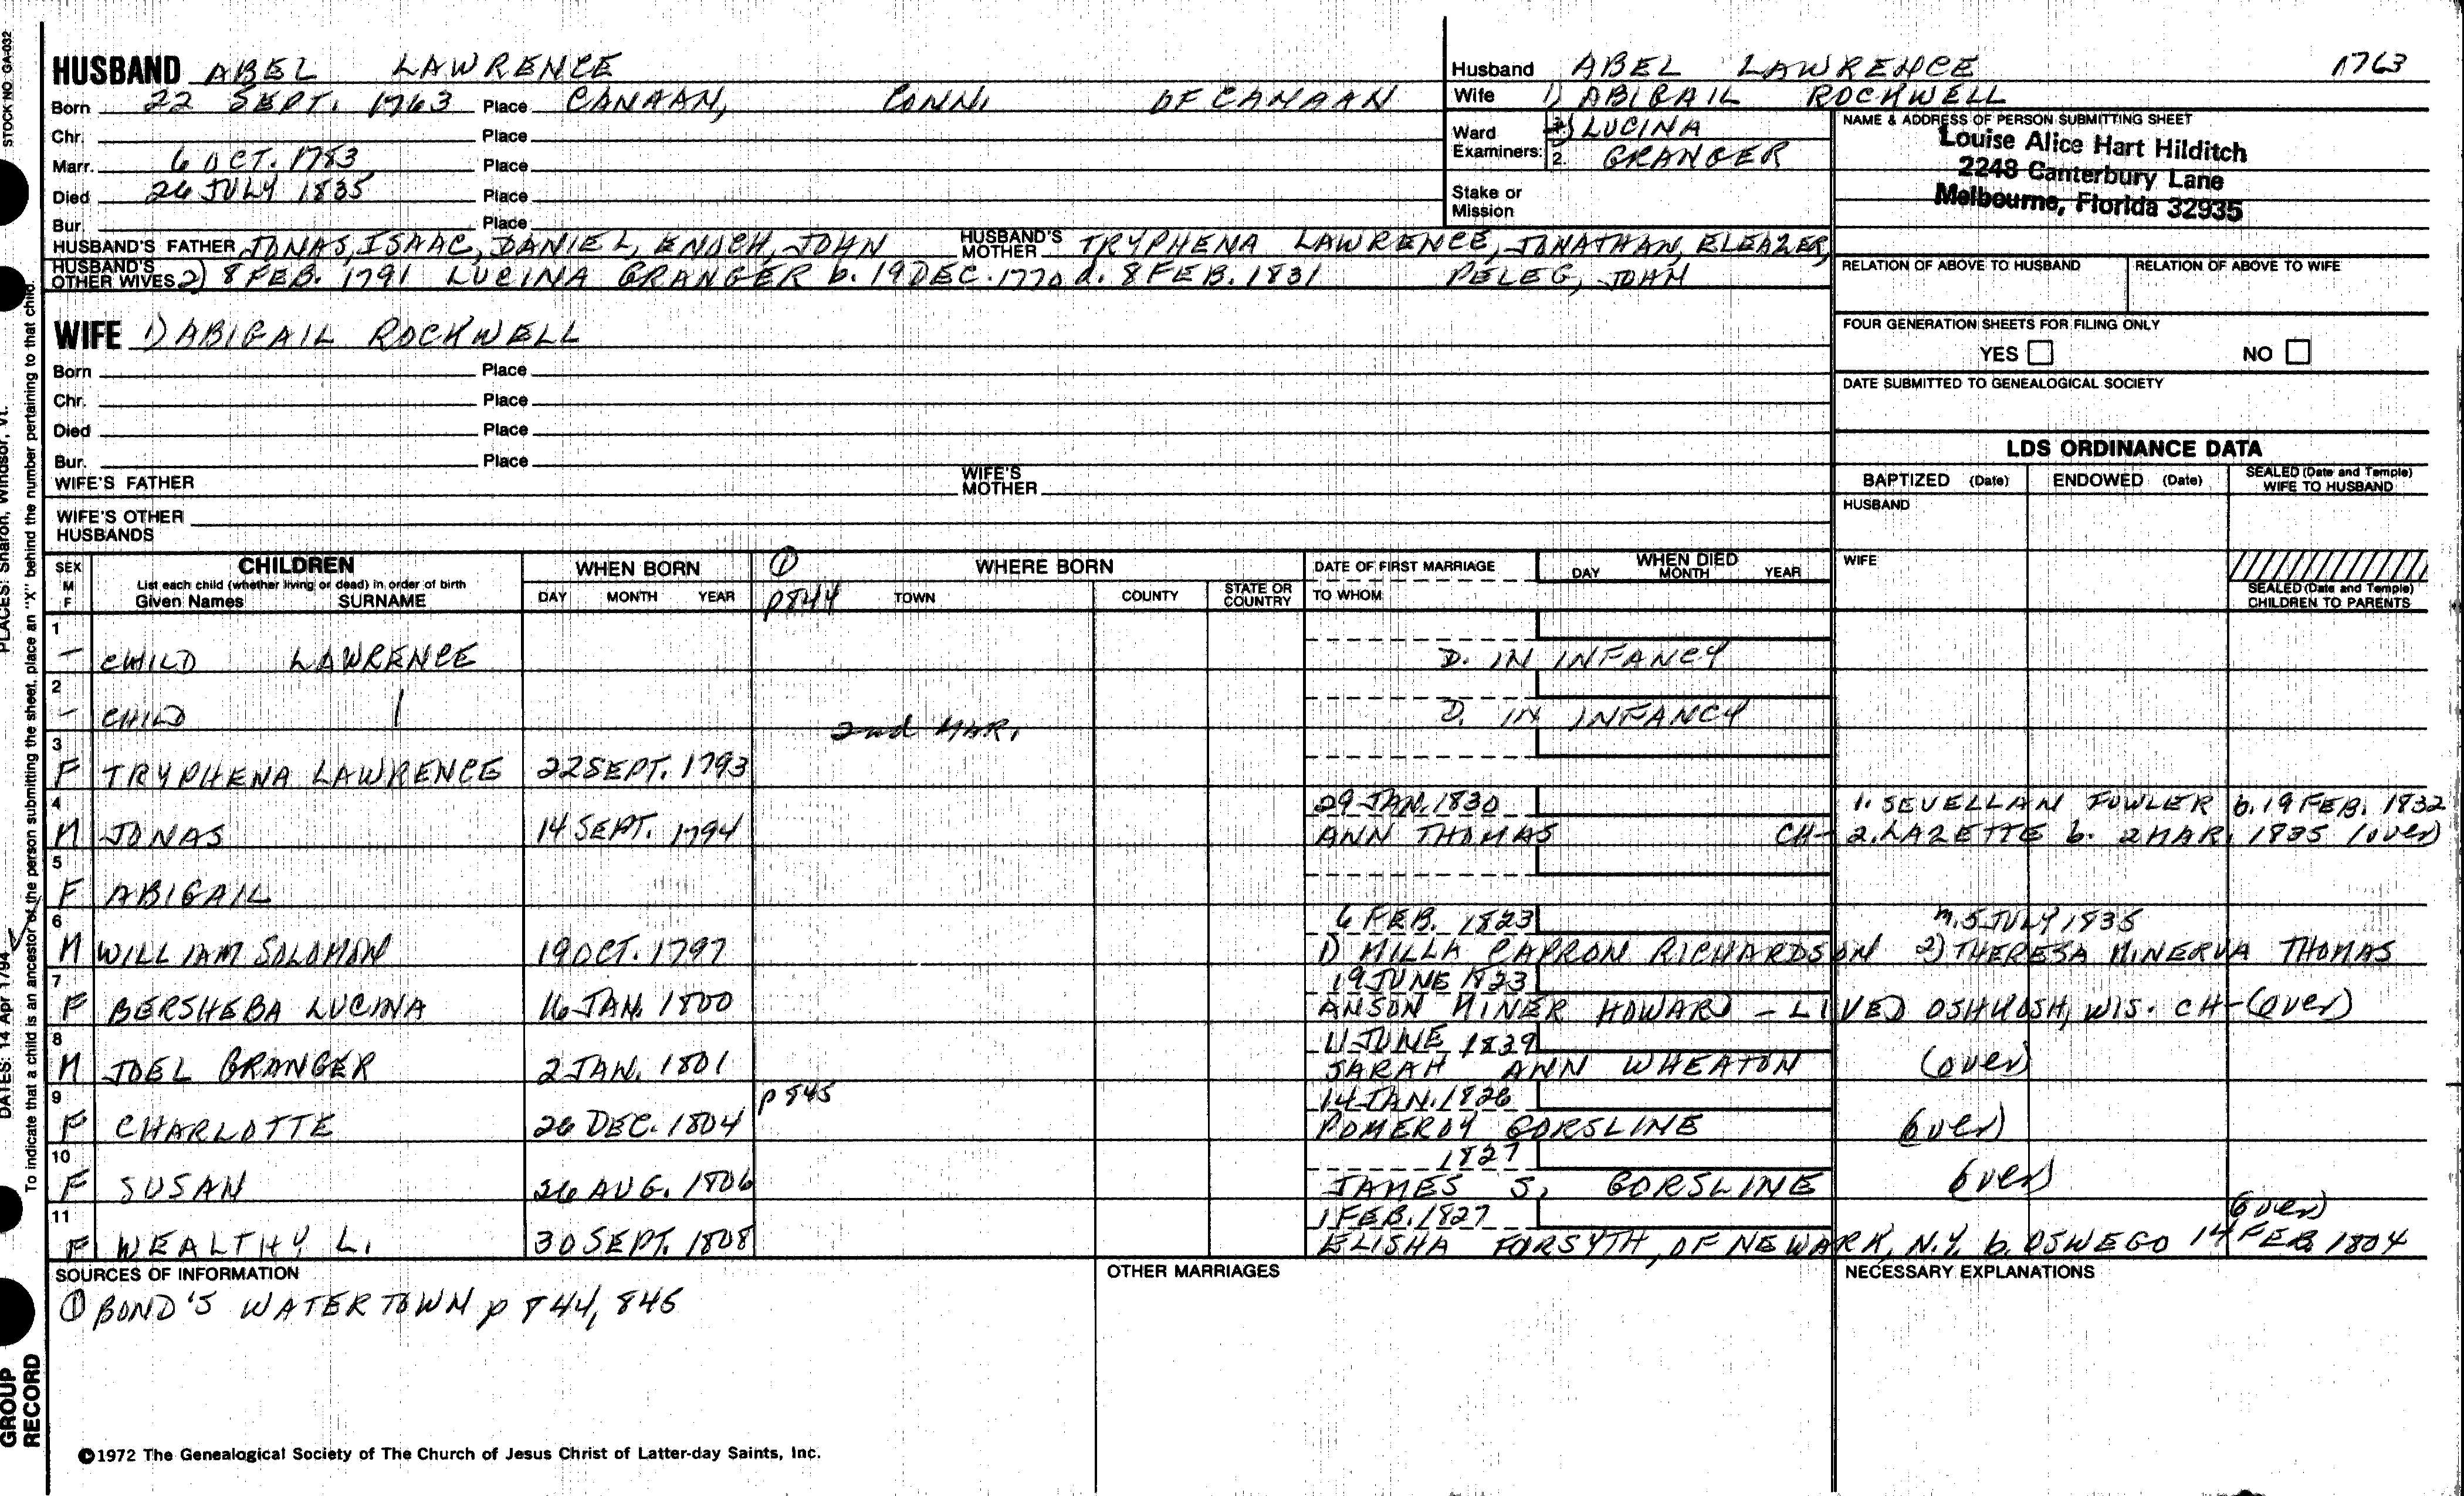 STOCK NO. GA-032
HUSBAND ABEL LAWRENCE
Born 22 SEPT. 1763 Place CANAAN, CONN. OF CANAAN
Chr. Place
Marr. 6 OCT. 1783 Place
Died 26 JULY 1835 Place
Bur. Place
HUSBAND'S FATHER JONAS, ISAAC, DANIEL, ENOCH, JOHN HUSBAND'S MOTHER TRYPHENA LAWRENCE, JONATHAN, ELEAZER,
HUSBAND'S OTHER WIVES 2) 8 FEB. 1791 LUCINA GRANGER b. 19 DEC. 1770 d. 8 FEB. 1831 PELEG, JOHN
Husband ABEL LAWRENCE 1763
Wife 1) ABIGAIL ROCKWELL
Ward Examiners: 2) LUCINA
2. GRANGER
Stake or Mission
NAME & ADDRESS OF PERSON SUBMITTING SHEET
Louise Alice Hart Hilditch
2248 Canterbury Lane
Melbourne, Florida 32935
RELATION OF ABOVE TO HUSBAND RELATION OF ABOVE TO WIFE
FOUR GENERATION SHEETS FOR FILING ONLY
YES NO
DATE SUBMITTED TO GENEALOGICAL SOCIETY
WIFE 1) ABIGAIL ROCKWELL
Born Place
Chr. Place
Died Place
Bur. Place
WIFE'S FATHER WIFE'S MOTHER
WIFE'S OTHER HUSBANDS
LDS ORDINANCE DATA
BAPTIZED (Date) ENDOWED (Date) SEALED (Date and Temple) WIFE TO HUSBAND
HUSBAND
WIFE
SEALED (Date and Temple) CHILDREN TO PARENTS
SEX M F
CHILDREN
List each child (whether living or dead) in order of birth
Given Names SURNAME
WHEN BORN
DAY MONTH YEAR
① p844
WHERE BORN
TOWN COUNTY STATE OR COUNTRY
DATE OF FIRST MARRIAGE
TO WHOM
WHEN DIED
DAY MONTH YEAR
1
– CHILD LAWRENCE D. IN INFANCY
2
– CHILD | D. IN INFANCY
2nd MAR.
3
F TRYPHENA LAWRENCE 22 SEPT. 1793
4 29 JAN. 1830 1. SEVELLAN FOWLER b. 19 FEB. 1832
M JONAS 14 SEPT. 1794 ANN THOMAS CH- 2. LAZETTE b. 2 MAR. 1835 (over)
5
F ABIGAIL
6 6 FEB. 1823 m. 5 JULY 1835
M WILLIAM SOLOMON 19 OCT. 1797 1) MILLA CAPRON RICHARDSON 2) THERESA MINERVA THOMAS
7 19 JUNE 1823
F BERSHEBA LUCINA 16 JAN. 1800 ANSON MINER HOWARD - LIVED OSHKOSH, WIS. CH- (over)
8 11 JUNE 1829
M JOEL GRANGER 2 JAN. 1801 SARAH ANN WHEATON (over)
9 p 845 14 JAN. 1826
F CHARLOTTE 26 DEC. 1804 POMEROY GORSLINE (over)
10 1827
F SUSAN 26 AUG. 1806 JAMES S. GORSLINE (over)
11 1 FEB. 1827 (over)
F WEALTHY L. 30 SEPT. 1808 ELISHA FORSYTH, OF NEWARK, N.Y. b. OSWEGO 14 FEB. 1804
SOURCES OF INFORMATION
① BOND'S WATERTOWN p 844, 845
OTHER MARRIAGES
NECESSARY EXPLANATIONS
©1972 The Genealogical Society of The Church of Jesus Christ of Latter-day Saints, Inc.
To indicate that a child is an ancestor of the person submitting the sheet, place an "X" behind the number pertaining to that child.
DATES: 14 Apr 1794
PLACES: Sharon, Windsor, Vt.
GROUP RECORD